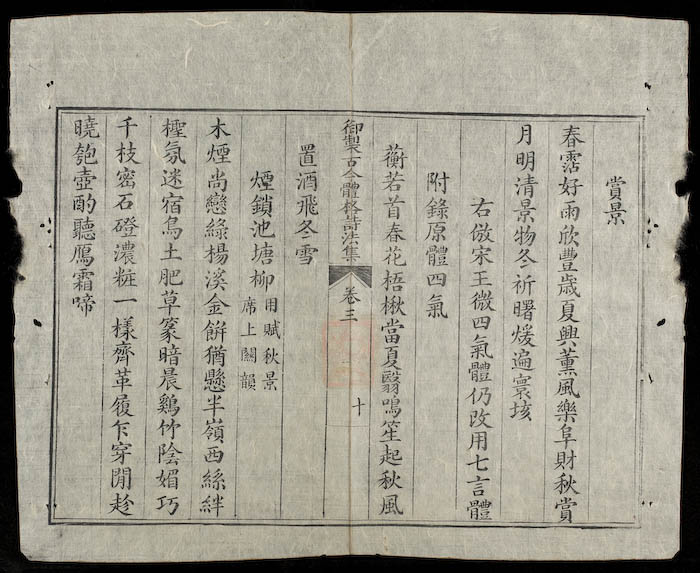 賞景
春霑好雨欣豐歳夏興薰風樂阜財秋賞
月明清景物冬祈曙煖遍寰垓
右倣宋王微四氣體仍改用七言體
附錄原體四氣
蘅若首春花梧楸當夏翳鳴笙起秋風
御製古今體格詩法集
卷三
十
置酒飛冬雪
煙鎖池塘柳
用賦秋景
席上闗韻
木煙尚戀綠楊溪金餅猶懸半嶺西絲絆
檉氛迷宿烏土肥草篆暗晨鷄竹陰媚巧
千枝密石磴濃粧一樣齊革履乍穿閒趁
曉匏壺酌聽鴈霜啼